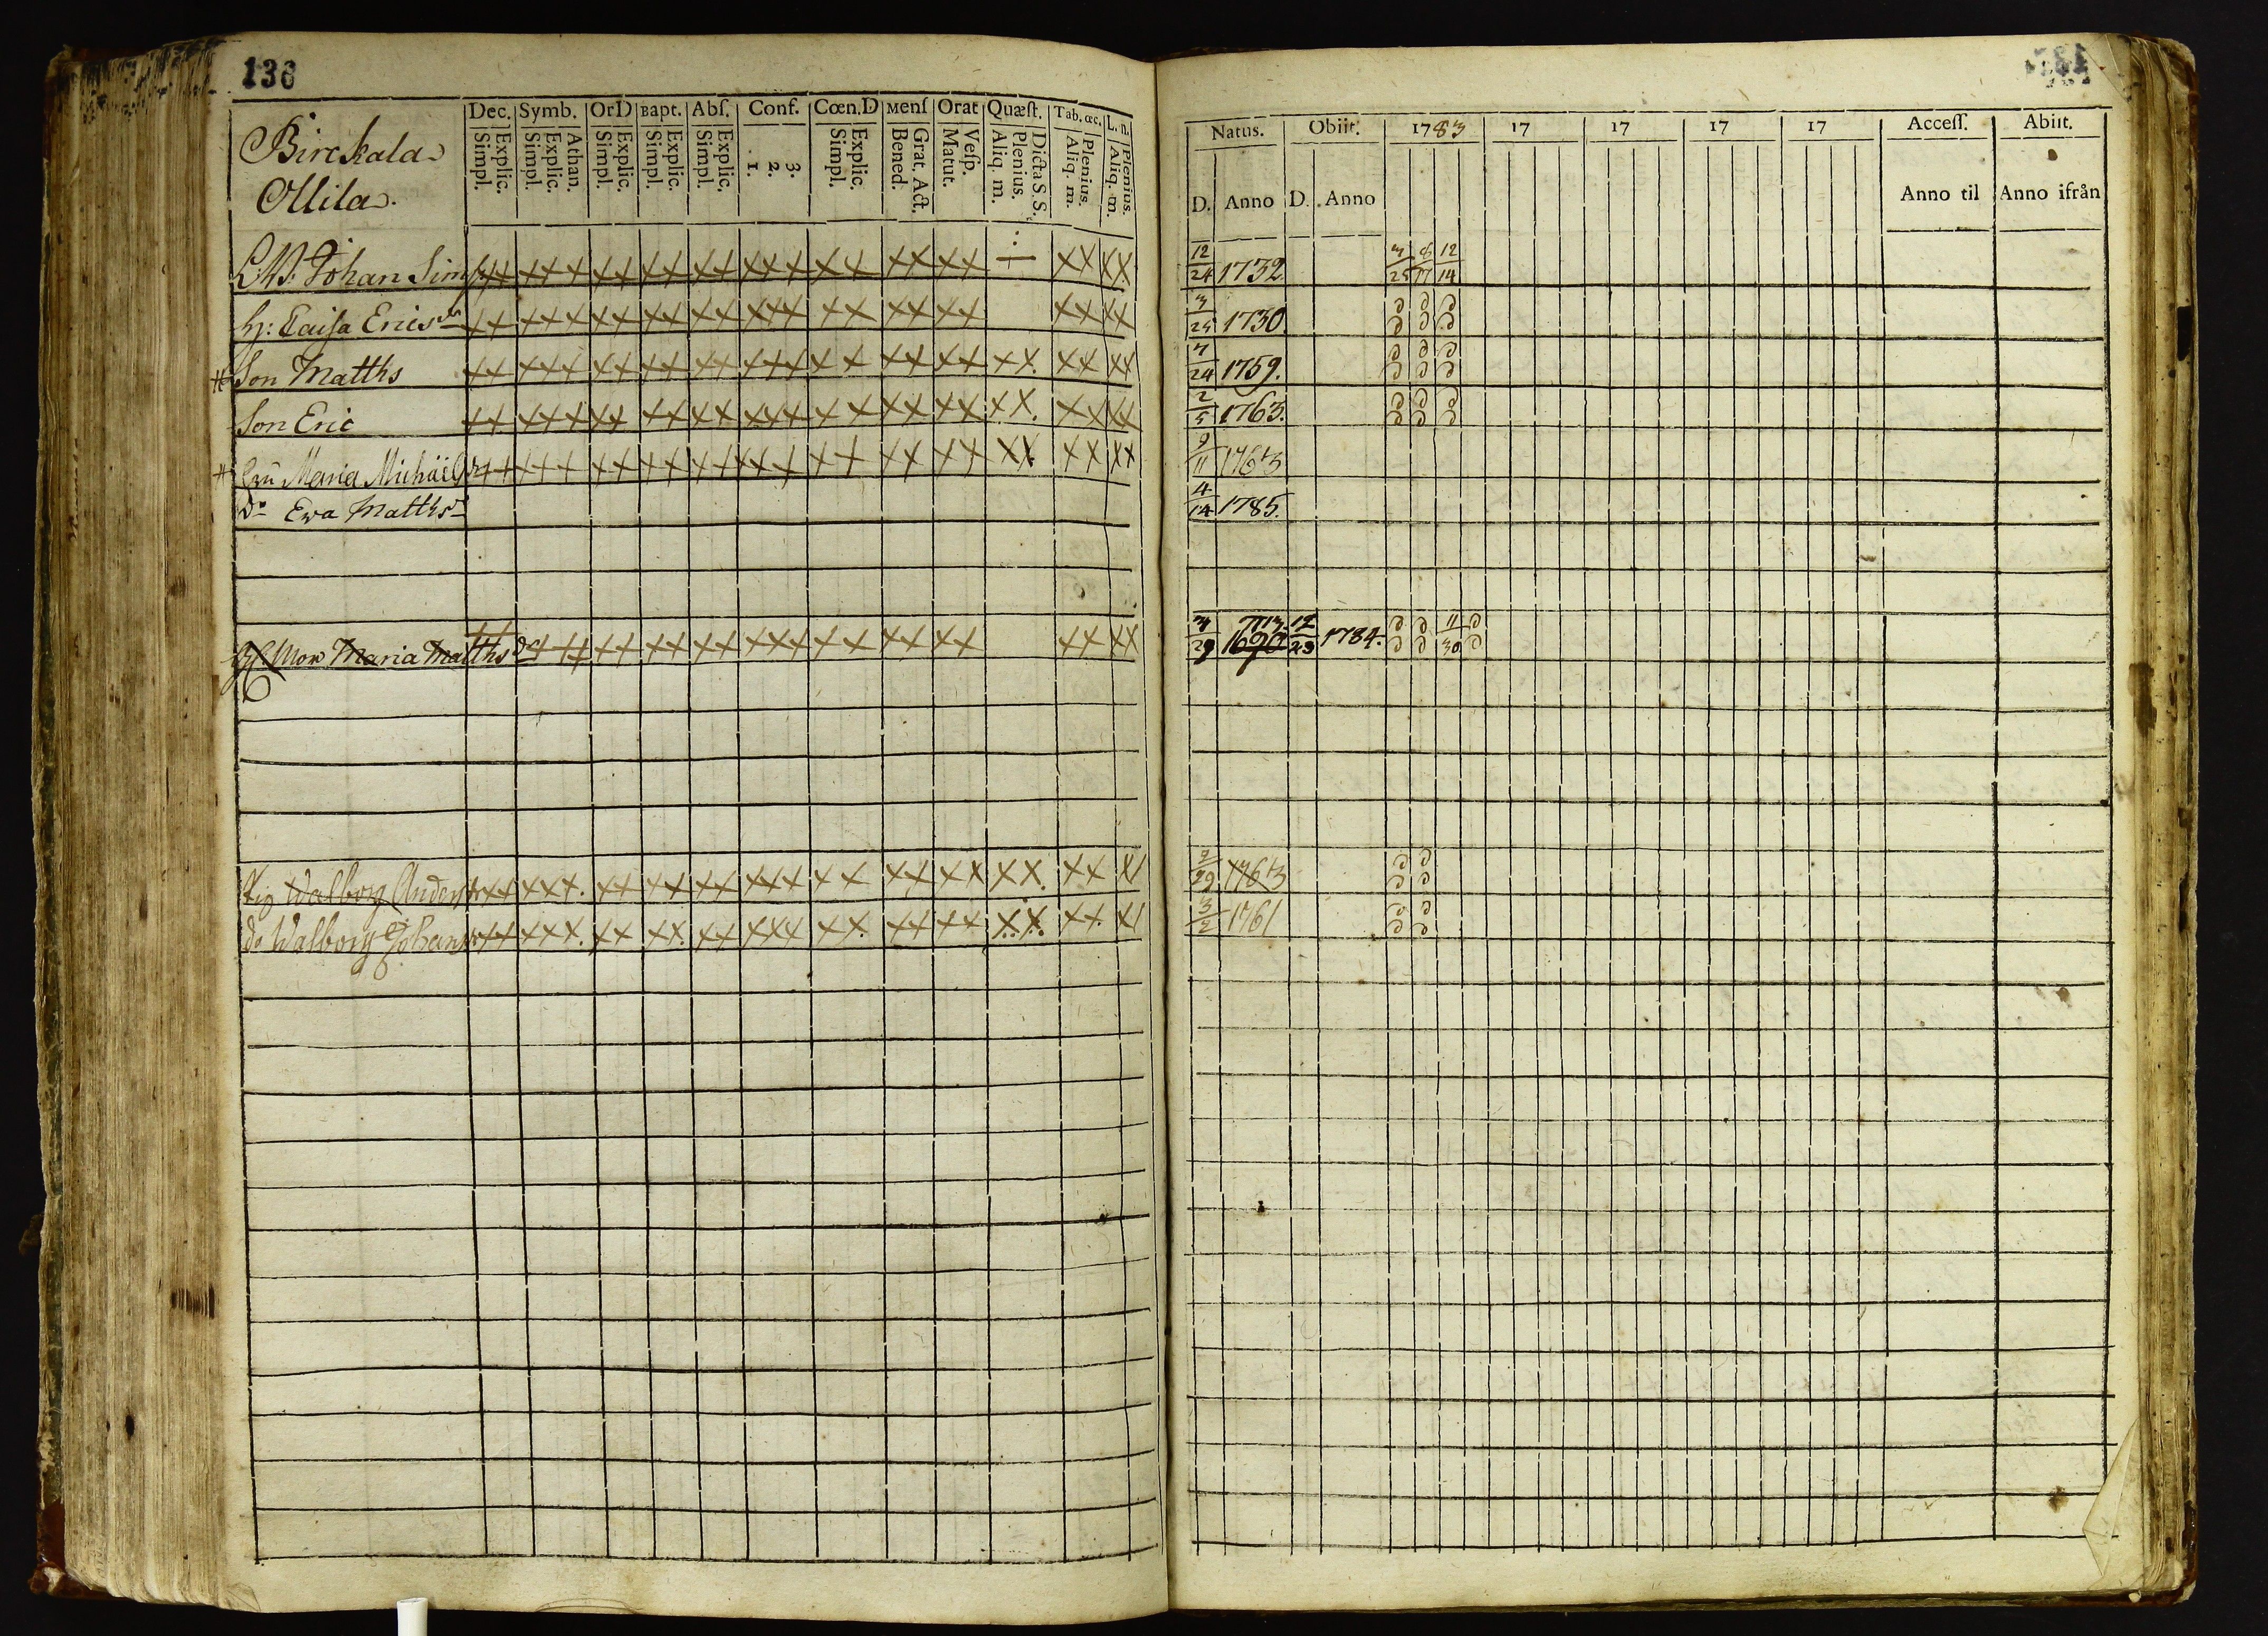 136
Birckala
Ollila.
Dec. Symb. OrD Bapt. Abſ. Conf. Cœn.D Menſ Orat Quæſt. Tab. œc. L. n.
Explic. Simpl. Athan. Explic. Simpl. Explic. Simpl. Explic. Simpl. Explic. Simpl. 3. 2. 1. Explic. Simpl. Grat. Act. Bened. Veſp. Matut. Dicta S. S. Plenius. Aliq. m. Plenius. Aliq. m. Plenius. Aliq. m.
Johan Sim
H: Caisa Ericsdr
Son Matths
Son Eric
Maria Michäelsdr
Dr Ewa Matthsdr
Mor Maria Matthsdr
Pig Walborg Andersdr
do Walborg Johansdr
Natus. Obiit. 1783 17 17 17 17 Acceſſ. Abiit.
D. Anno D. Anno Anno til Anno ifrån
12/24 1732 3/25 8/17 12/14
3/25 1730
7/24 1759.
2/5 1763.
9/11 1763
4/14 1785.
3/29 1690 1713. 12/23 1784. 11/30
9/29 1763
3/2 1761